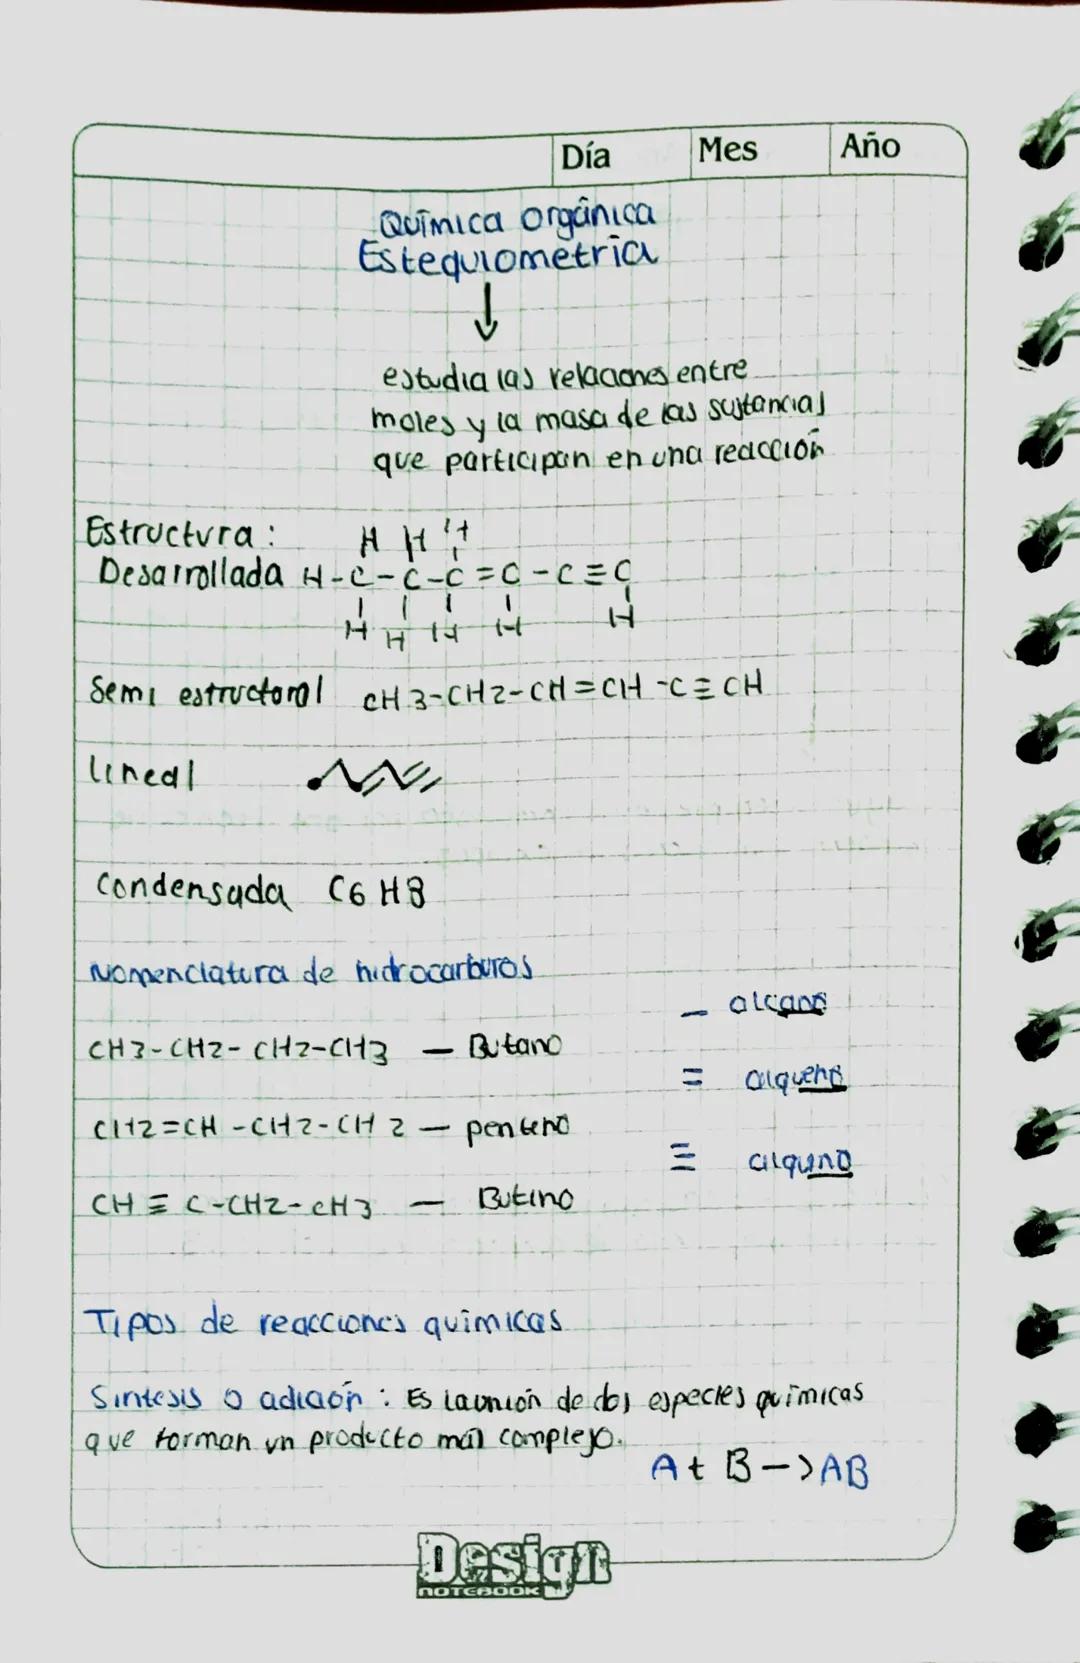 Día Mes Año
Química orgánica
Estequiometria
↓
estudia las relaciones entre
moles y la masa de las sustancias
que participan en una reacción
Estructura: H H H
Desarrollada H-C-C-C=C-C≡C
H H H H H
Semi estructoral CH3-CH2-CH=CH-C≡CH
lineal
Condensada C6H8
Nomenclatura de hidrocarburos
— alcano
CH3-CH2-CH2-CH3 — Butano
= alqueno
CH2=CH-CH2-CH2 — penteno
≡ alquino
CH≡C-CH2-CH3 — Butino
Tipos de reacciones químicas
Sintesis o adición: Es la unión de dos especies químicas
que forman un producto más complejo.
A + B -> AB
Design
NOTEBOOK